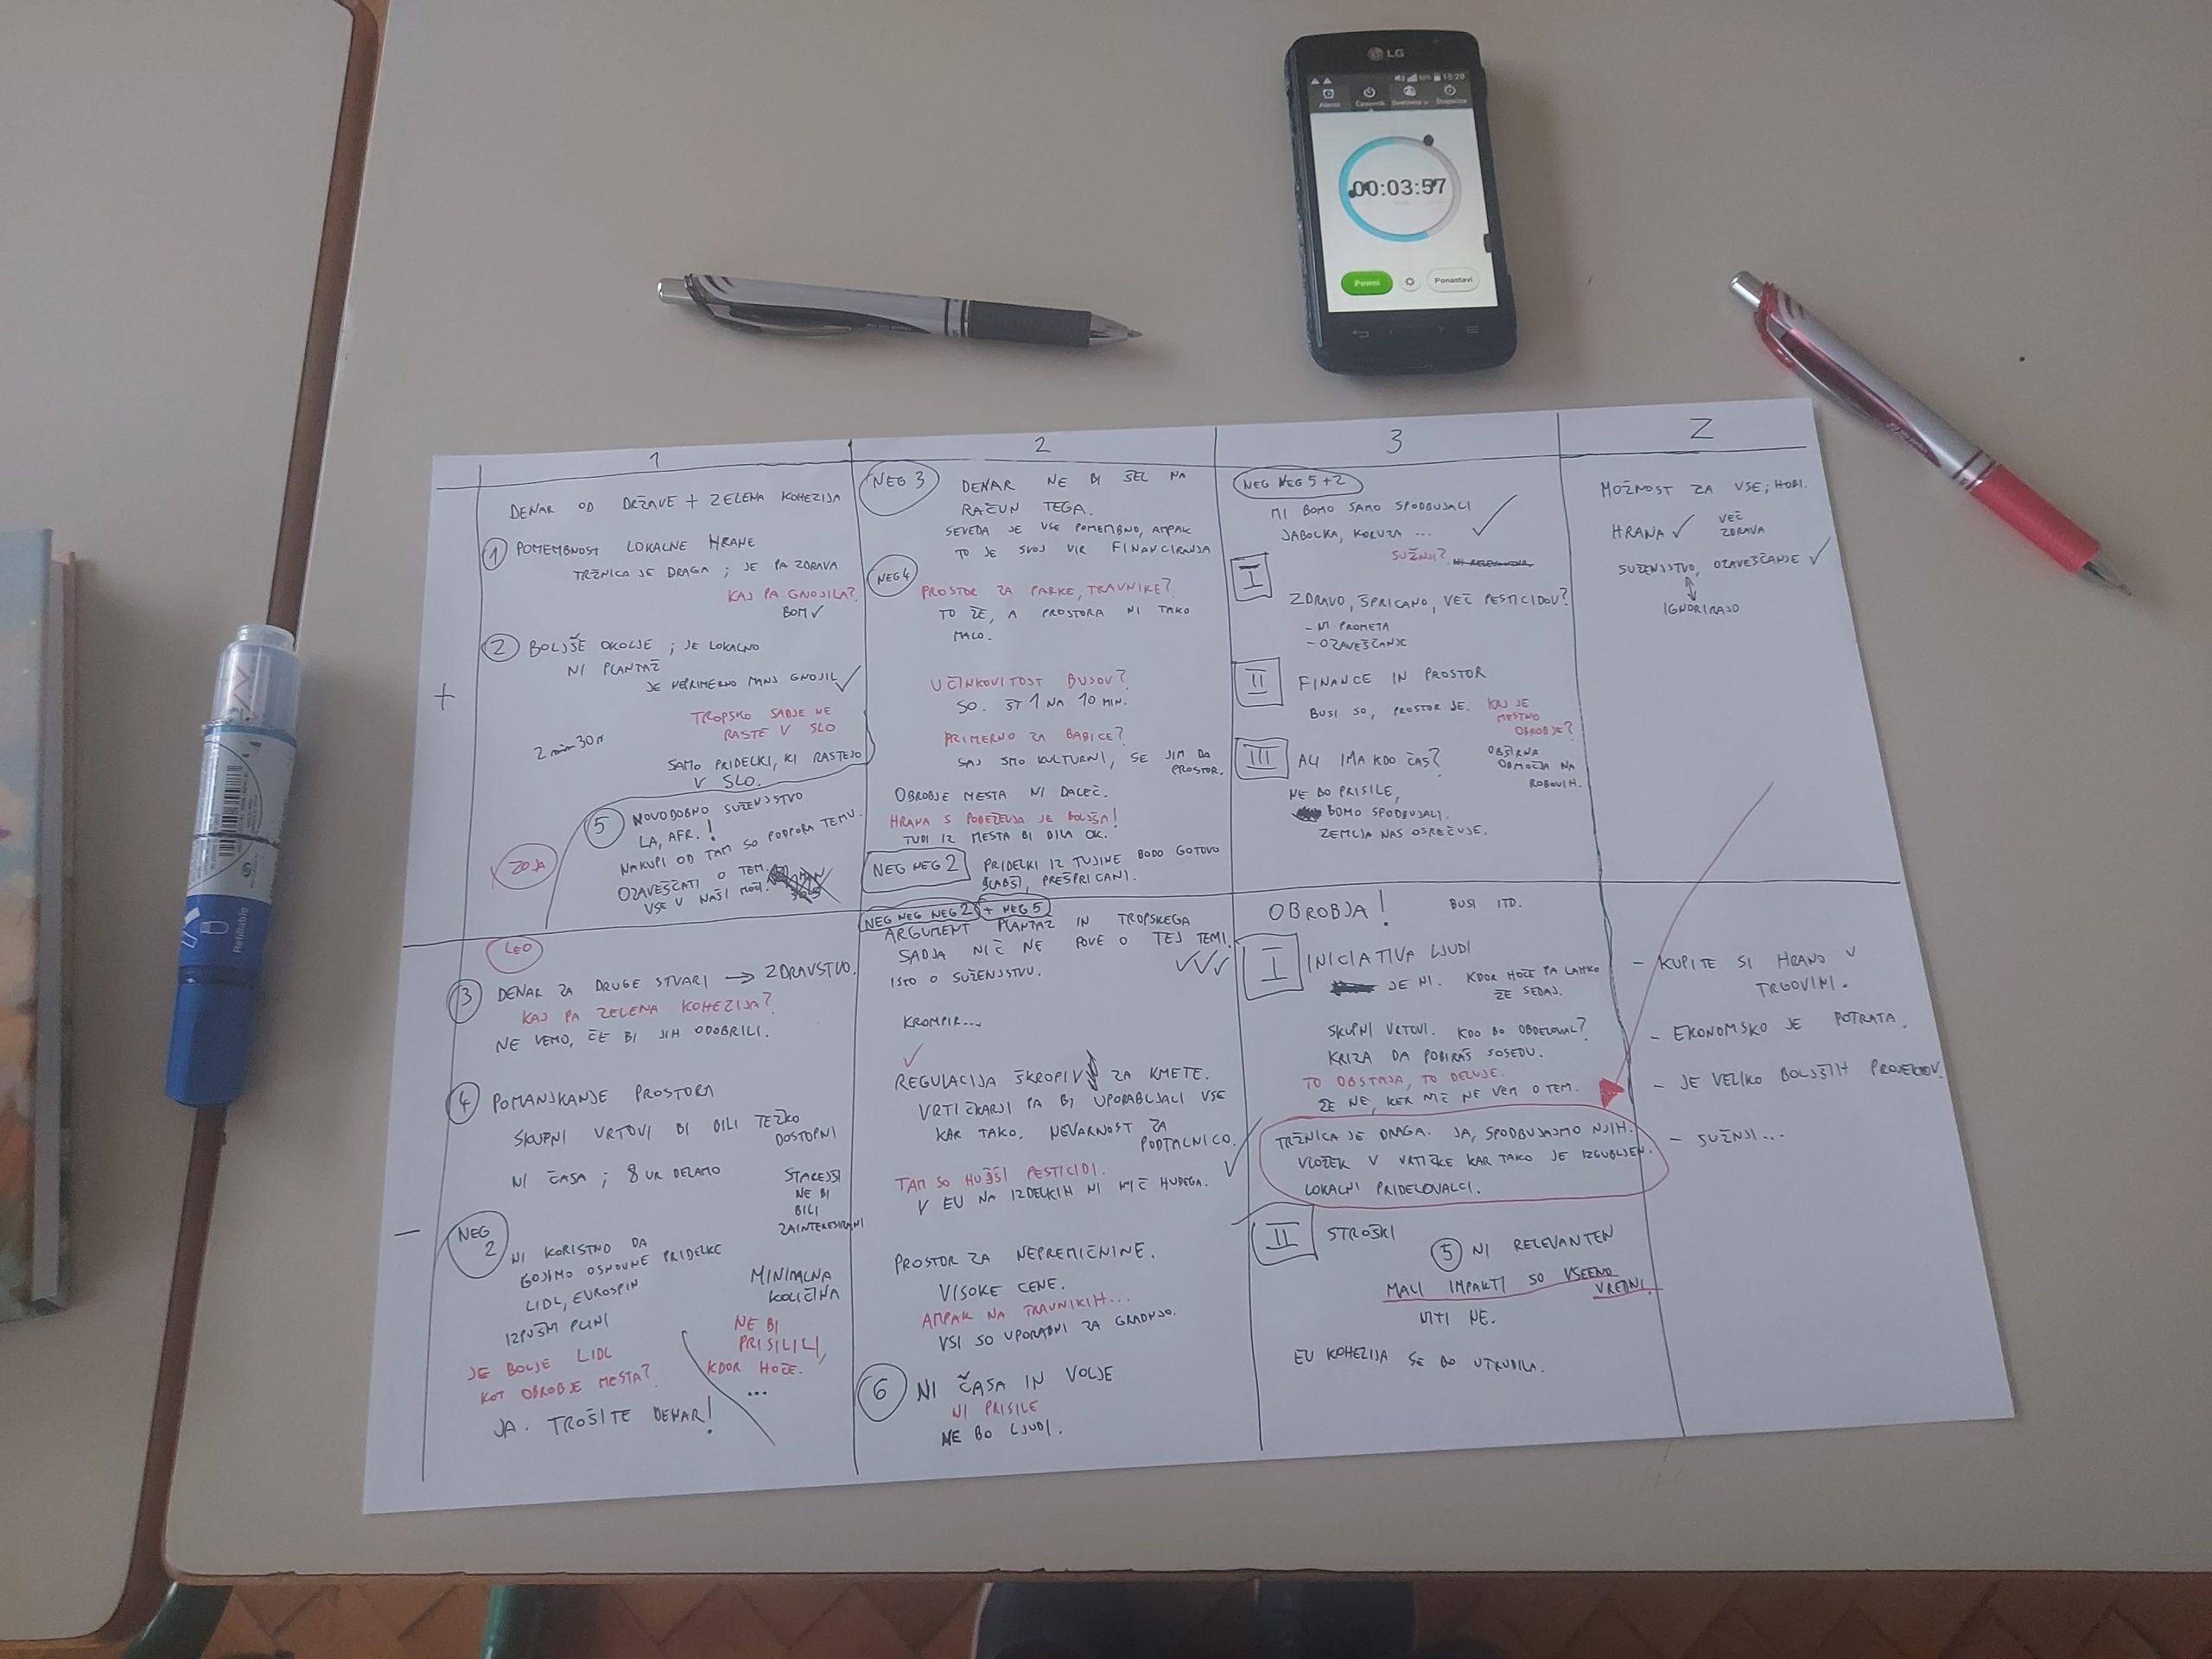 LG
15:28
00:03:57
Ponastavi
Refillable
1
2
3
Z
+
DENAR OD DRŽAVE + ZELENA KOHEZIJA
1 POMEMBNOST LOKALNE HRANE
TRŽNICA JE DRAGA ; JE PA ZDRAVA
KAJ PA GNOJILA?
BOM ✓
2 BOLJŠE OKOLJE ; JE LOKALNO
NI PLANTAŽ
JE NEPRIMERNO MANJ GNOJIL ✓
TROPSKO SADJE NE
RASTE V SLO
2 min 30 s
SAMO PRIDELKI, KI RASTEJO
V SLO.
5 NOVODOBNO SUŽENJSTVO
LA, AFR. !
NAKUPI OD TAM SO PODPORA TEMU.
OZAVEŠČATI O TEM.
VSE V NAŠI MOČI.
ZOJA
NEG 3
DENAR NE BI ŠEL NA
RAČUN TEGA.
SEVEDA JE VSE POMEMBNO, AMPAK
TO JE SVOJ VIR FINANCIRANJA
NEG 4
PROSTOR ZA PARKE, TRAVNIKE?
TO ŽE, A PROSTORA NI TAKO
MALO.
UČINKOVITOST BUSOV?
SO. ŠT 1 NA 10 MIN.
PRIMERNO ZA BABICE?
SAJ SMO KULTURNI, SE JIM DA
PROSTOR.
OBROBJE MESTA NI DALEČ.
HRANA S PODEŽELJA JE BOLJŠA!
TUDI IZ MESTA BI BILA OK.
NEG NEG 2 PRIDELKI IZ TUJINE BODO GOTOVO
SLABŠI, PREŠPRICANI.
NEG NEG 5 + 2
MI BOMO SAMO SPODBUJALI
JABOLKA, KORUZA ... ✓
SUŽNJI?
I
ZDRAVO, ŠPRICANO, VEČ PESTICIDOV?
- NI PROMETA
- OZAVEŠČANJE
II FINANCE IN PROSTOR
BUSI SO, PROSTOR JE. KAJ JE
MESTNO
OBROBJE?
OBŠIRNA
OBMOČJA NA
ROBOVIH.
III ALI IMA KDO ČAS?
NE BO PRISILE,
BOMO SPODBUJALI.
ZEMLJA NAS OSREČUJE.
MOŽNOST ZA VSE; HOBI.
HRANA ✓ VEČ
ZDRAVA
SUŽENJSTVO, OZAVEŠČANJE ✓
IGNORIRAJO
-
LEO
3 DENAR ZA DRUGE STVARI → ZDRAVSTVO.
KAJ PA ZELENA KOHEZIJA?
NE VEMO, ČE BI JIH ODOBRILI.
4 POMANJKANJE PROSTORA
SKUPNI VRTOVI BI BILI TEŽKO
DOSTOPNI
NI ČASA ; 8 UR DELAMO
STAREJŠI
NE BI
BILI
ZAINTERESIRANI
NEG
2
NI KORISTNO DA
GOJIMO OSNOVNE PRIDELKE
LIDL, EUROSPIN
IZPUŠNI PLINI
JE BOLJE LIDL
KOT OBROBJE MESTA?
JA. TROŠITE DENAR!
MINIMALNA
KOLIČINA
NE BI
PRISILILI,
KDOR HOČE.
...
NEG NEG NEG 2 + NEG 5
ARGUMENT PLANTAŽ IN TROPSKEGA
SADJA NIČ NE POVE O TEJ TEMI.
ISTO O SUŽENJSTVU. ✓✓✓
KROMPIR...
✓
REGULACIJA ŠKROPIV ZA KMETE.
VRTIČKARJI PA BI UPORABLJALI VSE
KAR TAKO. NEVARNOST ZA
PODTALNICO.
TAM SO HUJŠI PESTICIDI.
V EU NA IZDELKIH NI NIČ HUDEGA. ✓
PROSTOR ZA NEPREMIČNINE.
VISOKE CENE.
AMPAK NA TRAVNIKIH...
VSI SO UPORABNI ZA GRADNJO.
6 NI ČASA IN VOLJE
NI PRISILE
NE BO LJUDI.
OBROBJA! BUSI ITD.
I INICIATIVA LJUDI
JE NI. KDOR HOČE PA LAHKO
ŽE SEDAJ.
SKUPNI VRTOVI. KDO BO OBDELOVAL?
KRIZA DA POBIRAŠ SOSEDU.
TO OBSTAJA, TO DELUJE.
ŽE NE, KER NIČ NE VEM O TEM.
TRŽNICA JE DRAGA. JA, SPODBUJAJMO NJIH.
VLOŽEK V VRTIČKE KAR TAKO JE IZGUBLJEN.
LOKALNI PRIDELOVALCI.
II STROŠKI
5 NI RELEVANTEN
MALI IMPAKTI SO VSEENO
VREDNI.
NITI NE.
EU KOHEZIJA SE BO UTRUDILA.
- KUPITE SI HRANO V
TRGOVINI.
- EKONOMSKO JE POTRATA.
- JE VELIKO BOLJŠIH PROJEKTOV.
- SUŽNJI...